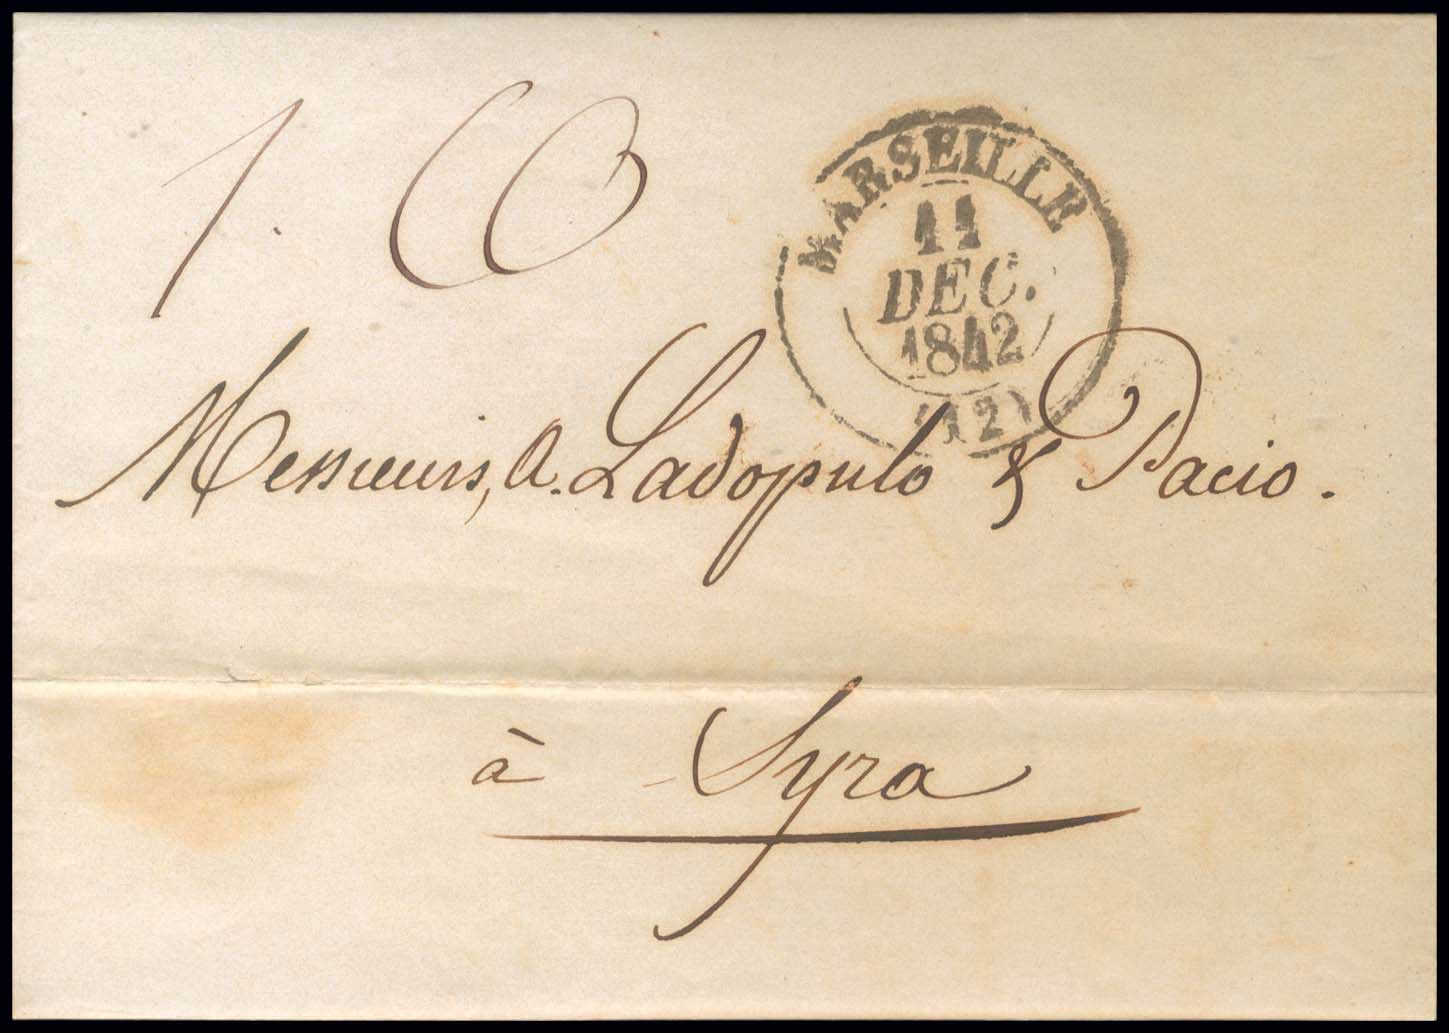 1. 60
MARSEILLE
11
DEC.
1842
(12)
Messieurs, A. Ladopulo & Pacio.
à Syra